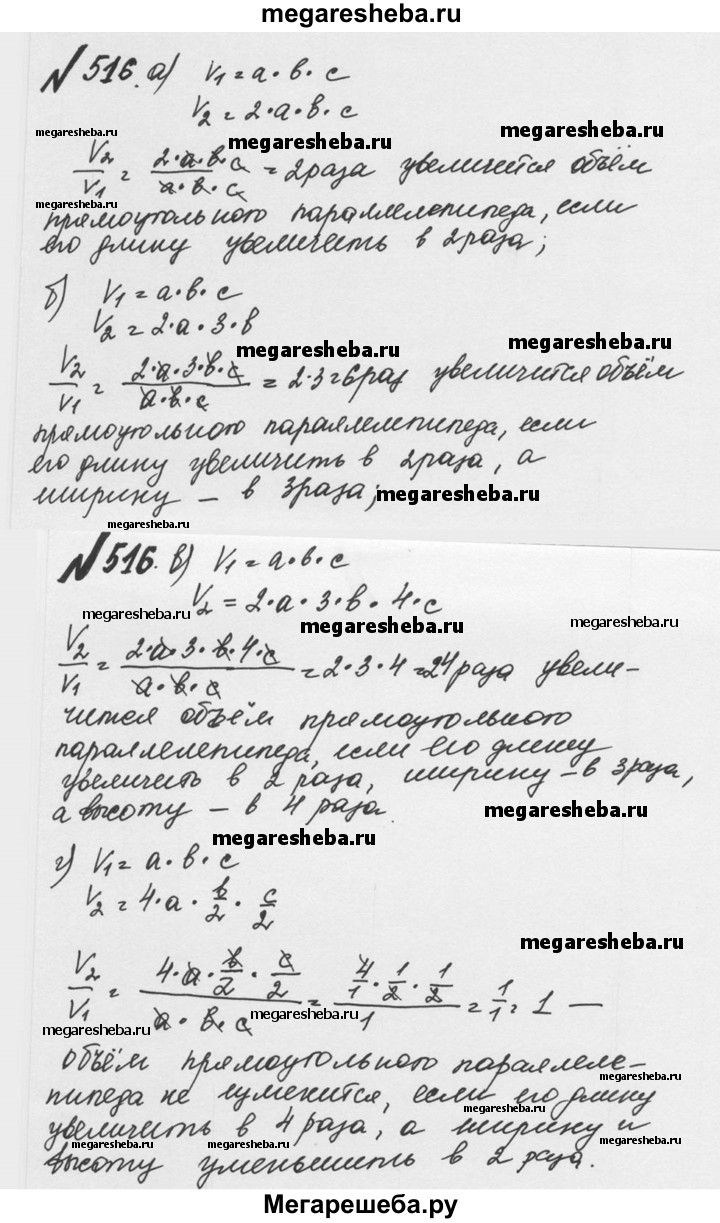 megaresheba.ru
№516. а) V₁ = a · b · c
V₂ = 2 · a · b · c
megaresheba.ru
megaresheba.ru
megaresheba.ru
V₂/V₁ = 2·a·b·c/a·b·c = 2 раза увеличится объём
megaresheba.ru
прямоугольного параллелепипеда, если
его длину увеличить в 2 раза;
б) V₁ = a·b·c
V₂ = 2·a·3·b
megaresheba.ru
megaresheba.ru
V₂/V₁ = 2·a·3·b·c/a·b·c = 2·3=6 раз увеличится объём
прямоугольного параллелепипеда, если
его длину увеличить в 2 раза, а
ширину – в 3 раза;
megaresheba.ru
megaresheba.ru
№516. в) V₁ = a·b·c
V₂ = 2·a·3·b·4·c
megaresheba.ru
megaresheba.ru
megaresheba.ru
V₂/V₁ = 2·a·3·b·4·c/a·b·c = 2·3·4=24 раза увели-
чится объём прямоугольного
параллелепипеда, если его длину
увеличить в 2 раза, ширину – в 3 раза,
а высоту – в 4 раза.
megaresheba.ru
megaresheba.ru
г) V₁ = a·b·c
V₂ = 4·a·b/2·c/2
megaresheba.ru
V₂/V₁ = 4·a·b/2·c/2/a·b·c = 4/1·1/2·1/2/1 = 1/1 = 1 —
megaresheba.ru
megaresheba.ru
объём прямоугольного параллеле-
пипеда не изменится, если его длину
megaresheba.ru
megaresheba.ru
увеличить в 4 раза, а ширину и
megaresheba.ru
megaresheba.ru
megaresheba.ru
высоту уменьшить в 2 раза.
Мегарешеба.ру